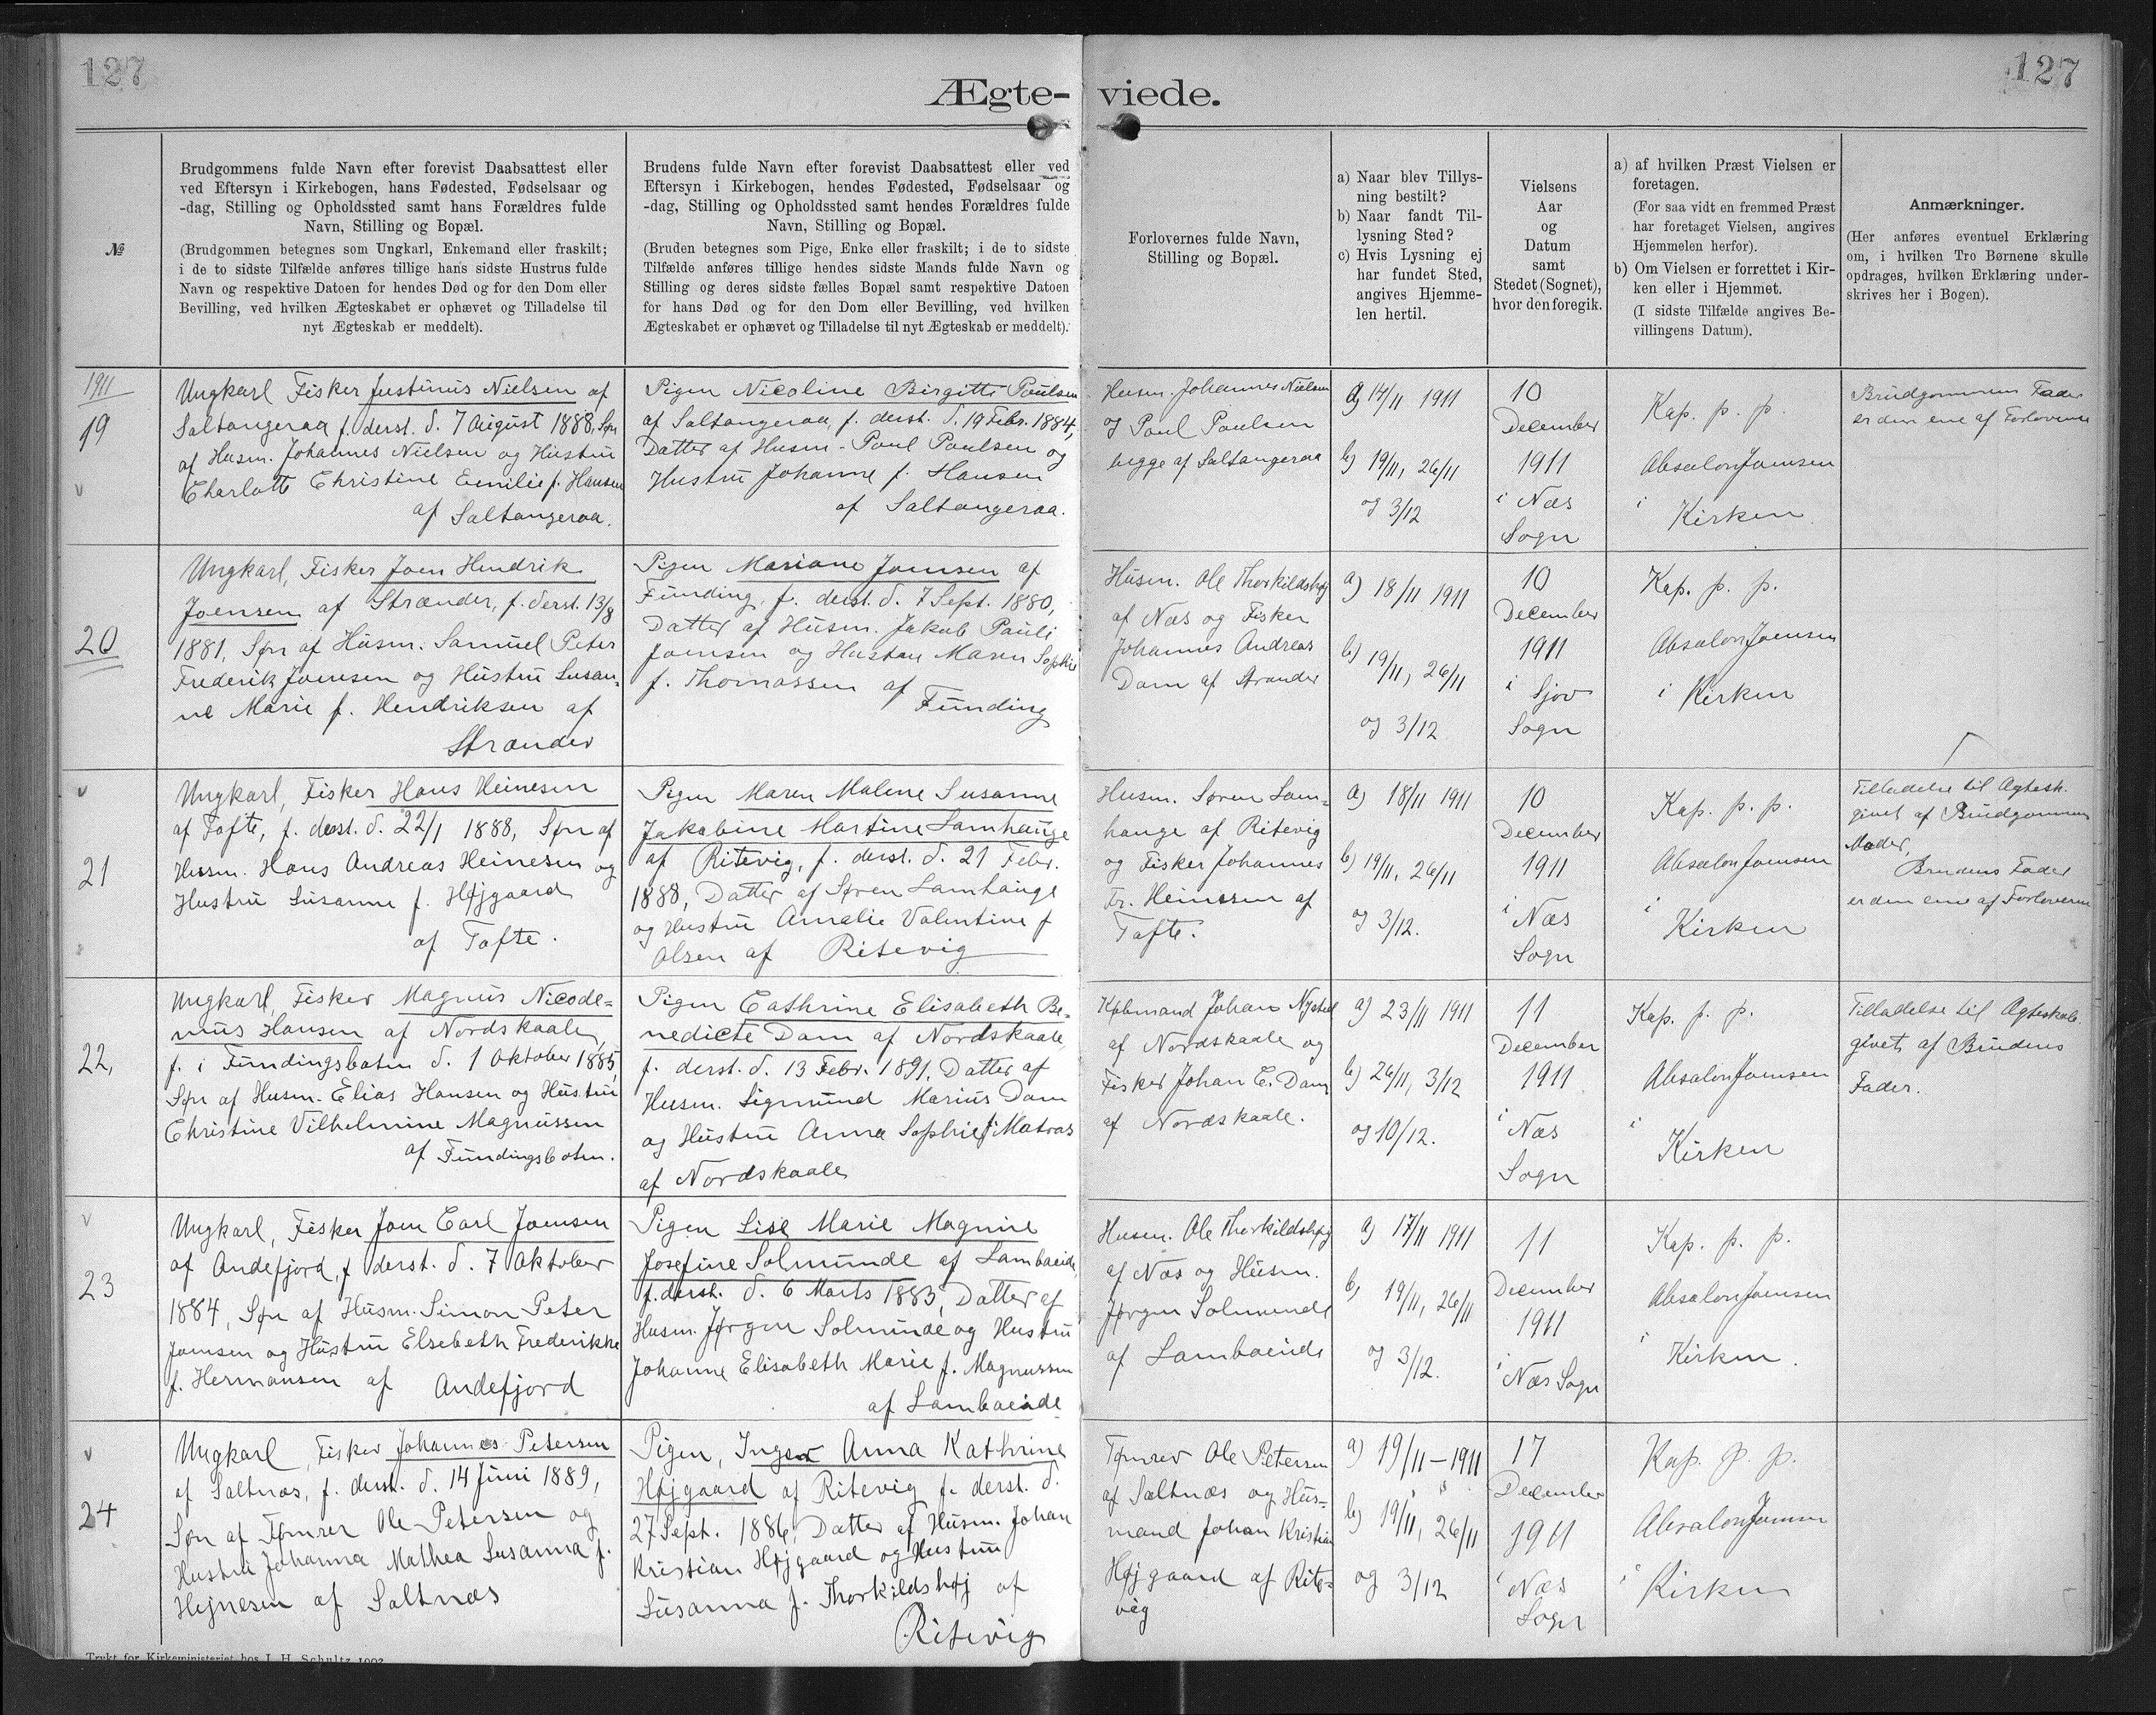 127
127
Ægte- viede.
№
Brudgommens fulde Navn efter forevist Daabsattest eller
ved Eftersyn i Kirkebogen, hans Fødested, Fødselsaar og
-dag, Stilling og Opholdssted samt hans Forældres fulde
Navn, Stilling og Bopæl.
(Brudgommen betegnes som Ungkarl, Enkemand eller fraskilt;
i de to sidste Tilfælde anføres tillige hans sidste Hustrus fulde
Navn og respektive Datoen for hendes Død og for den Dom eller
Bevilling, ved hvilken Ægteskabet er ophævet og Tilladelse til
nyt Ægteskab er meddelt).
Brudens fulde Navn efter forevist Daabsattest eller ved
Eftersyn i Kirkebogen, hendes Fødested, Fødselsaar og
-dag, Stilling og Opholdssted samt hendes Forældres fulde
Navn, Stilling og Bopæl.
(Bruden betegnes som Pige, Enke eller fraskilt; i de to sidste
Tilfælde anføres tillige hendes sidste Mands fulde Navn og
Stilling og deres sidste fælles Bopæl samt respektive Datoen
for hans Død og for den Dom eller Bevilling, ved hvilken
Ægteskabet er ophævet og Tilladelse til nyt Ægteskab er meddelt).
Forlovernes fulde Navn,
Stilling og Bopæl.
a) Naar blev Tillys-
ning bestilt?
b) Naar fandt Til-
lysning Sted?
c) Hvis Lysning ej
har fundet Sted,
angives Hjemme-
len hertil.
Vielsens
Aar
og
Datum
samt
Stedet (Sognet),
hvor den foregik.
a) af hvilken Præst Vielsen er
foretagen.
(For saa vidt en fremmed Præst
har foretaget Vielsen, angives
Hjemmelen herfor).
b) Om Vielsen er forrettet i Kir-
ken eller i Hjemmet.
(I sidste Tilfælde angives Be-
villingens Datum).
Anmærkninger.
(Her anføres eventuel Erklæring
om, i hvilken Tro Børnene skulle
opdrages, hvilken Erklæring under-
skrives her i Bogen).
1911
19
Ungkarl Fisker Justinus Nielsen af
Saltangeraa f. derst. d. 7 August 1888, Søn
af Husm. Johannes Nielsen og Hustru
Charlotte Christine Emilie f. Hansen
af Saltangeraa.
Pigen Nicoline Birgitte Poulsen
af Saltangeraa, f. derst. d. 19 Febr. 1884,
Datter af Husm. Poul Poulsen og
Hustru Johanne f. Hansen
af Saltangeraa.
Husm. Johannes Nielsen
og Poul Poulsen
begge af Saltangeraa
a) 14/11 1911
b) 19/11, 26/11
og 3/12
10
December
1911
i Næs
Sogn
Kap. p. p.
Absalon Joensen
i Kirken
Brudgommens Fader
er den ene af Forloverne
20
Ungkarl, Fisker Joen Hendrik
Joensen af Strænder, f. derst. 13/8
1881, Søn af Husm. Samuel Peter
Frederik Joensen og Hustru Susan-
ne Marie f. Hendriksen af
Strænder
Pigen Mariane Joensen af
Funding, f. derst. d. 7 Sept. 1880,
Datter af Husm. Jakob Pauli
Joensen og Hustru Maren Sophie
f. Thomassen af
Funding
Husm. Ole Thorkildshøj
af Næs og Fisker
Johannes Andreas
Dam af Strænder
a) 18/11 1911
b) 19/11, 26/11
og 3/12
10
December
1911
i Sjov
Sogn
Kap. p. p.
Absalon Joensen
i Kirken
21
Ungkarl, Fisker Hans Heinesen
af Tofte, f. derst. d. 22/1 1888, Søn af
Husm. Hans Andreas Heinesen og
Hustru Susanne f. Højgaard
af Tofte.
Pigen Maren Malene Susanne
Jakobine Martine Lamhauge
af Ritevig, f. derst. d. 21 Febr.
1888, Datter af Søren Lamhauge
og Hustru Amalie Valentine f
Olsen af Ritevig
Husm. Søren Lam-
hauge af Ritevig
og Fisker Johannes
Fr. Heinesen af
Tofte.
a) 18/11 1911
b) 19/11, 26/11
og 3/12.
10
December
1911
i Næs
Sogn
Kap. p. p.
Absalon Joensen
i Kirken
Tilladelse til Ægtesk.
givet af Brudgommens
Moder,
Brudens Fader
er den ene af Forloverne
22,
Ungkarl, Fisker Magnus Nicode-
mus Hansen af Nordskaale,
f. i Fundingsbotn d. 1 Oktober 1885,
Søn af Husm. Elias Hansen og Hustru
Christine Vilhelmine Magnussen
af Fundingsbotn.
Pigen Cathrine Elisabeth Be-
nedicte Dam af Nordskaale,
f. derst. d. 13 Febr. 1891, Datter af
Husm. Sigmund Marius Dam
og Hustru Anna Sophie f. Matras
af Nordskaale
Købmand Johan Nysted
af Nordskaale og
Fisker Johan E. Dam
af Nordskaale.
a) 23/11 1911
b) 26/11, 3/12
og 10/12.
11
December
1911
i Næs
Sogn
Kap. p. p.
Absalon Joensen
i Kirken
Tilladelse til Ægteskab
givet af Brudens
Fader.
23
Ungkarl, Fisker Joen Carl Joensen
af Andefjord, f derst. d. 7 Oktober
1884, Søn af Husm. Simon Peter
Joensen og Hustru Elsebeth Frederikke
f. Hermansen af Andefjord
Pigen Lise Marie Magnine
Josefine Solmunde af Lambareide,
f. derst. d. 6 Marts 1883, Datter af
Husm. Jørgen Solmunde og Hustru
Johanne Elisabeth Marie f. Magnussen
af Lambareide
Husm. Ole Thorkildshøj
af Næs og Husm.
Jørgen Solmunde
af Lambareide
a) 17/11 1911
b, 19/11, 26/11
og 3/12.
11
December
1911
i Næs Sogn
Kap. p. p.
Absalon Joensen
i Kirken.
24
Ungkarl, Fisker Johannes Petersen
af Saltnæs, f. derst. d. 14 Juni 1889,
Søn af Tømrer Ole Petersen og
Hustru Johanna Mathea Susanna f.
Hejnesen af Saltnæs
Pigen, Inger Anna Kathrine
Højgaard af Ritevig f. derst. d.
27 Sept. 1886, Datter af Husm. Johan
Kristian Højgaard og Hustru
Susanna f. Thorkildshøj af
Ritevig
Tømrer Ole Petersen
af Saltnæs og Hus-
mand Johan Kristian
Højgaard af Rite-
vig
a) 19/11 - 1911
b) 19/11, 26/11
og 3/12
17
December
1911
i Næs
Sogn
Kap. p. p.
Absalon Joensen
i Kirken
Trykt for Kirkeministeriet hos J. H. Schultz 1903